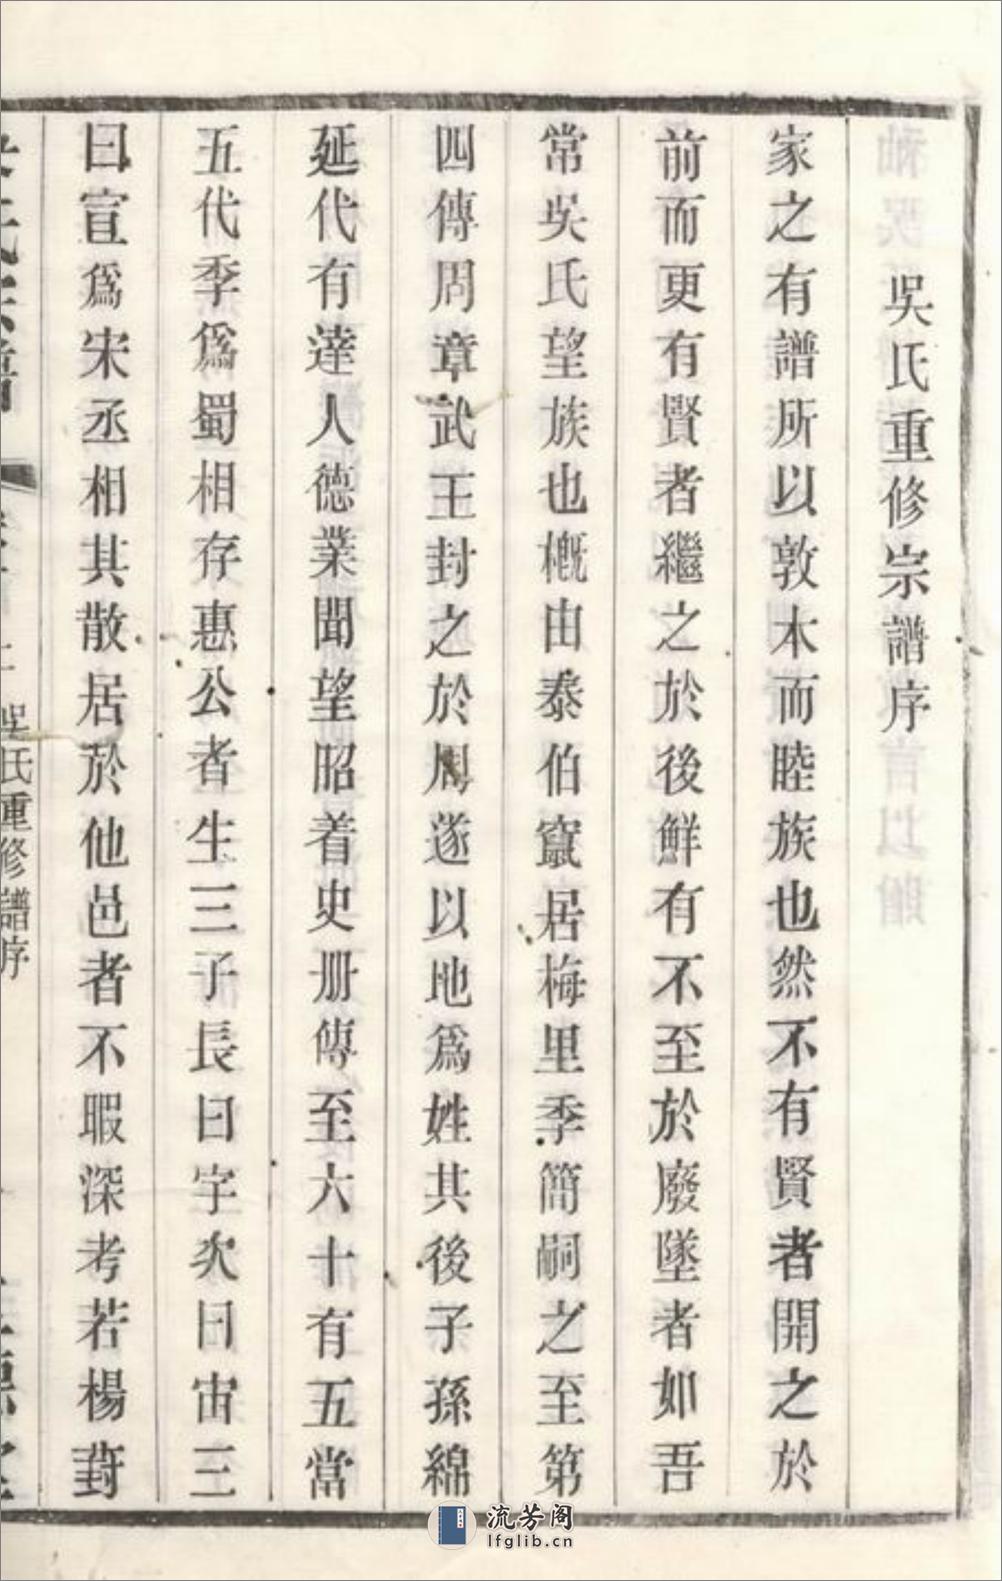 吳氏重修宗譜序
家之有譜所以敦木而睦族也然不有賢者開之於
前而更有賢者繼之於後鮮有不至於廢墜者如吾
常吳氏望族也槪由泰伯竄居梅里季簡嗣之至第
四傳周章武王封之於周遂以地爲姓其後子孫綿
延代有達人德業聞望昭着史册傳至六十有五當
五代季爲蜀相存惠公者生三子長曰字次曰宙三
曰宣爲宋丞相其散居於他邑者不暇深考若楊葑
吳氏重修譜序
流芳阁
lfglib.cn